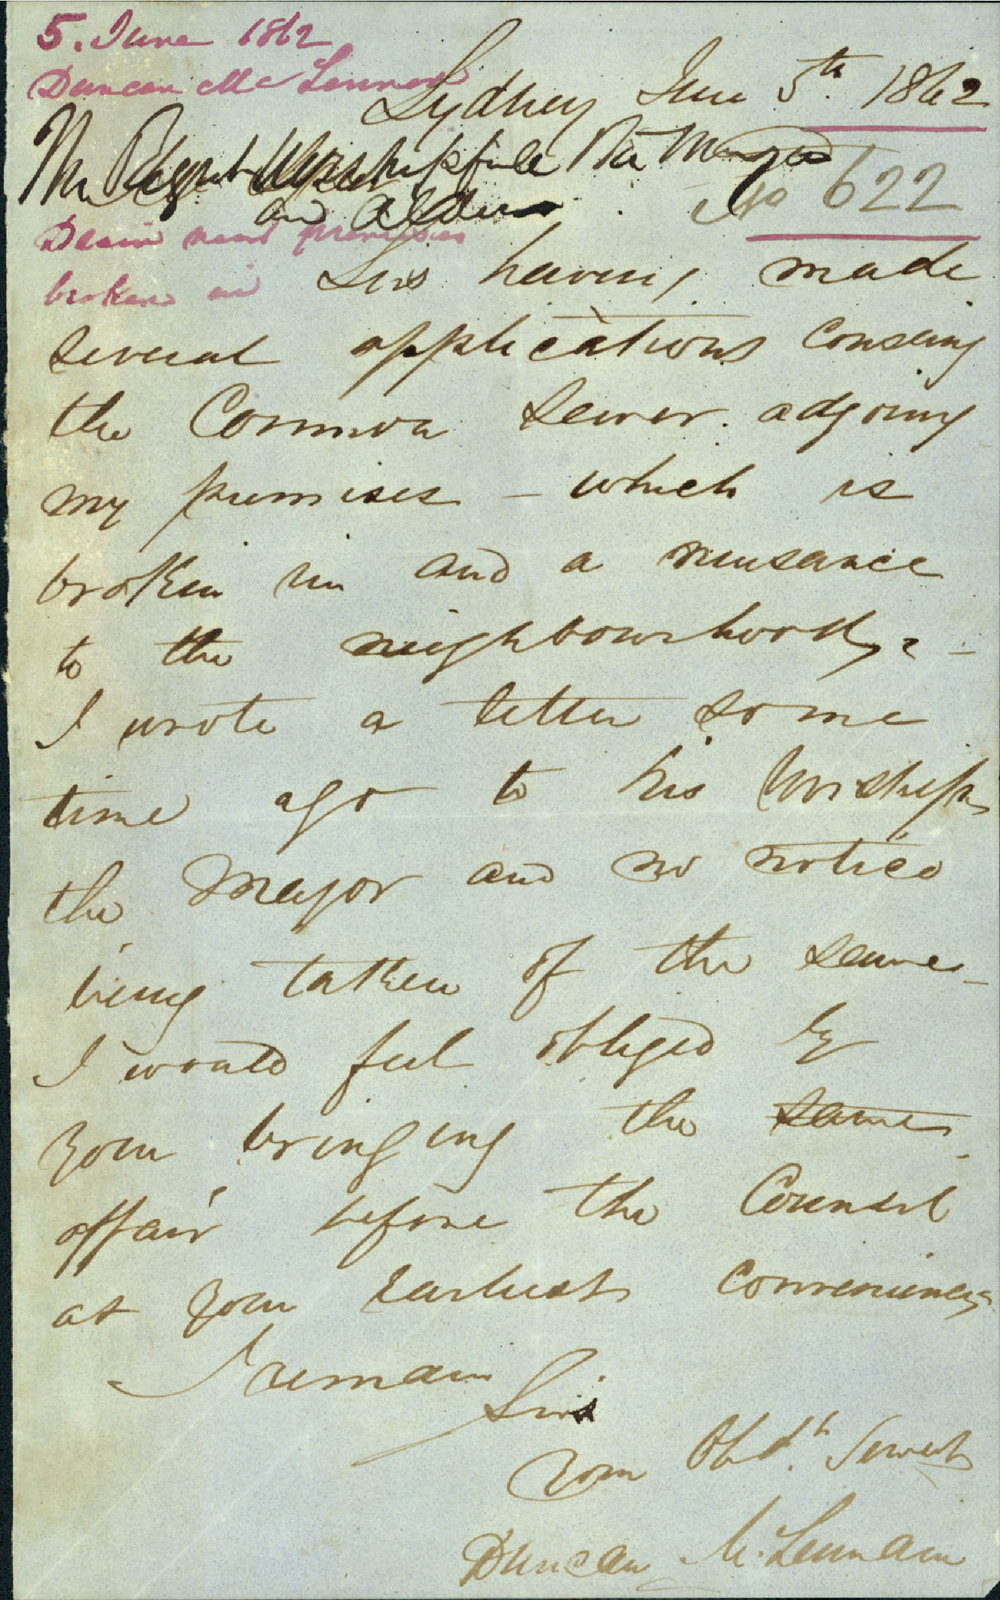 5. June 1862
Duncan McLennan
Sydney June 5th. 1862
The Right Worshipfull The Mayor
and Aldermen
No 622
Drain near premises
broken in
Sirs having made
several applications consering
the Common Sewer adjoing
my premises - which is
broken in and a neusance
to the neighbourhood, -
I wrote a letter some
time ago to his Worship
the Mayor and no notice
being taken of the same -
I would feel obliged by
your bringing the same
affair before the Counsel
at your earliest convenience
I remain
Sirs
your Obdt. Servant
Duncan McLennan